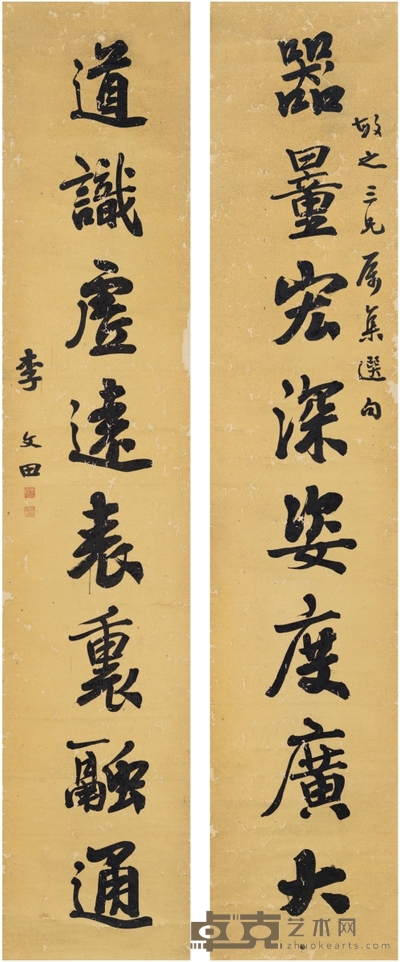 敬之三兄属集選句
器量宏深姿度廣大
道識虛遠表裏融通
李文田
卓克艺术网
zhuokearts.com